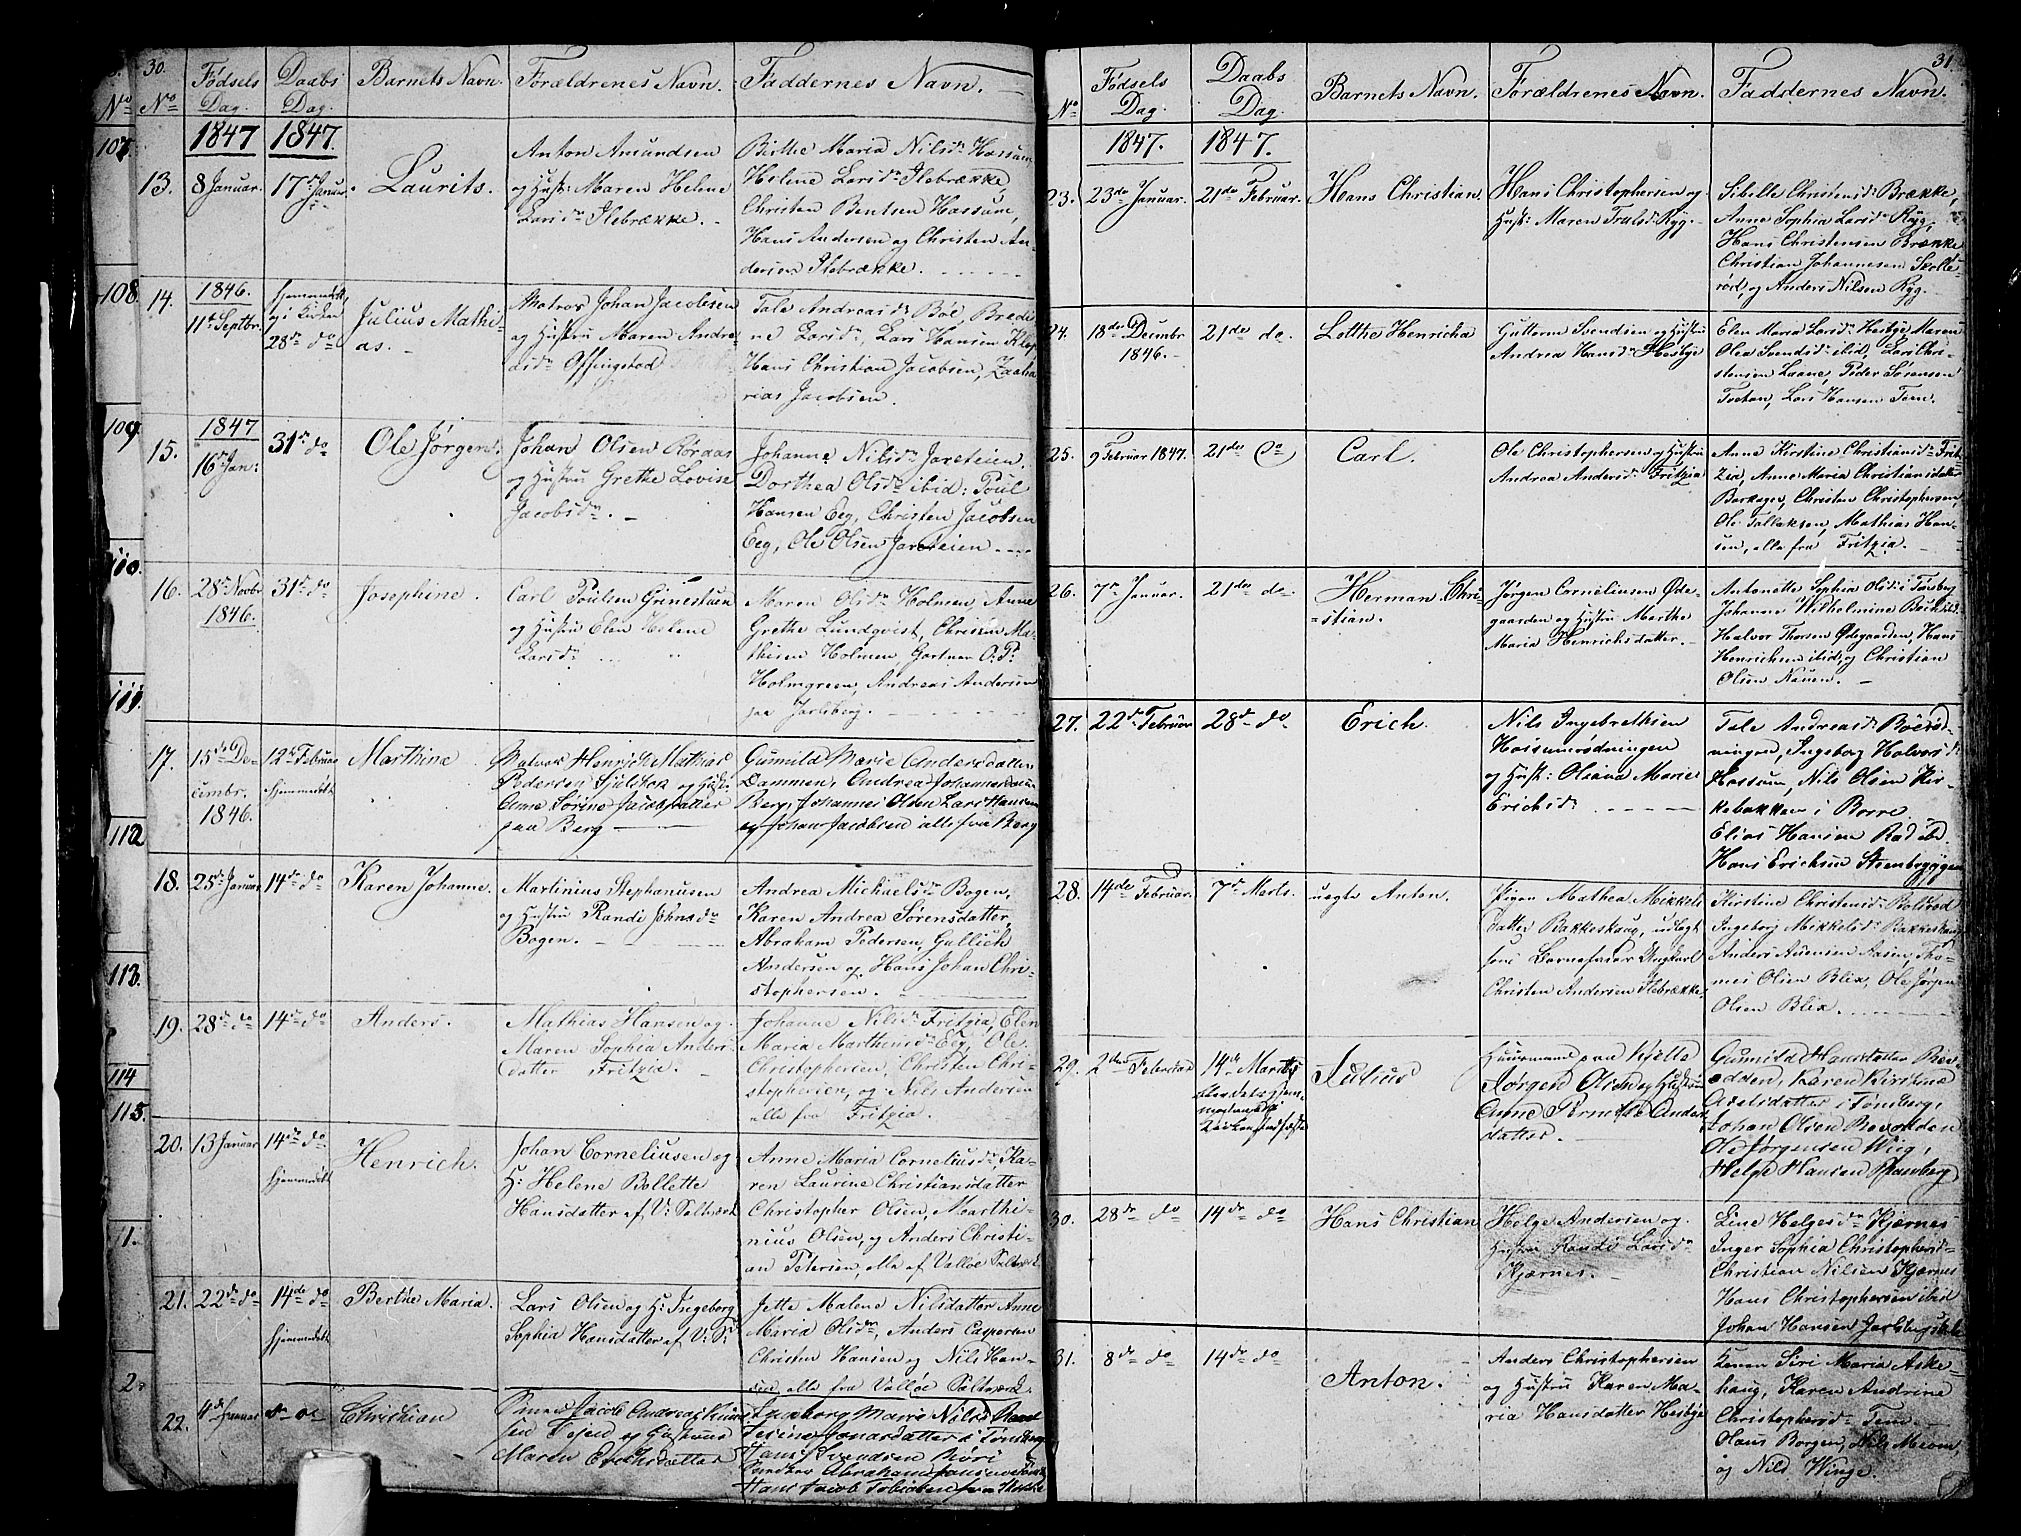 30.
No
Fødsels Dag.
Daabs Dag.
Barnets Navn.
Forældrenes Navn.
Faddernes Navn.
107.
1847
1847.
13.
8 Januar.
17de Januar.
Laurits.
Anton Amundsen
og Hust: Maren Helene
Larsdr Ilebrække.
Birthe Maria Nilsdr Hassum
Helene Larsdr Ilebrække,
Christen Bentsen Hassum,
Hans Andersen og Christen An-
dersen Ilebrække.
108.
14.
1846.
11te Septbr.
hjemmedøbt,
og i Kirken
28de do
Julius Mathi-
as.
Matros Johan Jacobsen
og Hustru Maren Andrea
Offingstad
Tale Andreasdr Bøe, Bredi
ne Larsdr, Lars Hansen
Hans Christian Jacobsen, Zacha
rias Jacobsen.
109.
15.
1847
16de Jan:
31te do
Ole Jørgen.
Johan Olsen Roraas
og Hustru Grethe Lovise
Jacobsdr.
Johanne Nilsdr Jareteien,
Dorthea Olsdr ibid: Poul
Hansen Eeg, Christen Jacobsen
Eeg, Ole Olsen Jareteien.
110.
16.
28de Novbr
1846.
31te do
Josephine.
Carl Poulsen Grinestuen
og Hustru Elen Helene
Larsdr
Maren Olsdr Holmen, Anne
Grethe Lundqvist, Christen Ma-
thesen Holmen, Gartner O: P:
Holmgreen, Andreas Andersen
paa Jarlsberg.
111.
17.
15de De-
cimbr.
1846.
12te Februar
hjemmedøbt
Marthine
Matros Henrich Mathias
Pedersen og Hust:
Anne Sørine Jacobsdatter
paa Berg
Gunnild Marie Andersdatter
Dammen, Andrea Johannesdatter
Berg, Johannes Olsen Lars Hansen
og Johan Jacobsen alle fra Berg
112
18.
25de Januar
14de do
Karen Johanne.
Martinius Stephanusen
og Hustru Randi Johnsdr
Bogen.
Andrea Michaelsdr Bogen,
Karen Andrea Sørensdatter,
Abraham Pedersen, Gullich
Andersen og Hans Johan Chri-
stophersen.
113.
19.
28de do
14de do
Anders.
Mathias Hansen og
Maren Sophia Anders-
datter Fritzia.
Johanne Nilsdr Fritzia, Elen
Maria Marthinsdr Eeg, Ole
Christophersen, Christen Chri-
stophersen, og Nils Andersen
alle fra Fritzia.
114
115.
20.
13 Januar
14de do
hjemmedøbt
Henrich.
Johan Corneliusen og
H: Helene Bollette
Hansdatter af V: Saltværk
Anne Maria Corneliusdr, Ka-
ren Laurine Christiansdatter
Christopher Olsen, Marthi-
nius Olsen, og Anders Christi-
an Petersen, alle af Valløe Saltværk
71.
21.
22de do
14de do
hjemmedøbt
Berthe Maria.
Lars Olsen og H: Ingeborg
Sophia Hansdatter af V: S:
Jette Malene Nilsdatter Anne
Maria Olsdr, Anders Caspersen
Christen Hansen og Nils Han-
sen alle fra Valløe Saltværk.
2.
22.
4de Januar
Christian
Jacob Andreas
og Hustrue
Maren Erichsdatter
Ingeborg Marie Nilsdr
Jonasdatter i Tønsberg
Hans Svendsen Røri
Abraham Jansen
Hans Jacob Tobiasen fra
31.
No
Fødsels Dag
Daabs Dag.
Barnets Navn.
Forældrenes Navn.
Faddernes Navn.
1847.
1847.
23.
23de Januar.
21de Februar.
Hans Christian.
Hans Christophersen og
Hust: Maren Trulsdr Ryg.
Sibille Christensdr Brække,
Anne Sophia Larsdr Ryg,
Hans Christensen Brække
Christian Johannesen Skolle-
rød, og Anders Nilsen Ryg.
24.
18de Decmbr
1846.
21de do.
Lotthe Henricha
Guttorm Svendsen og Hustru
Andrea Hansdr Hesbye
Elen Maria Larsdr Hesbye Maren
Olea Svendsdr ibid, Lars Chri-
stensen Laane, Peder Sørensen
Tveten, Lars Hansen Teen.
25.
9 Februar 1847.
21de do
Carl.
Ole Christophersen og Hustru
Andrea Andersdr Fritzia
Anne Kirstine Christiansdr Frit-
zia, Anne Maria Christiansdatter
Barkager, Christen Christophersen,
Ole Tollaksen, Mathias Han-
sen, alle fra Fritzia.
26.
7de Januar.
21de do.
Herman Chri-
stian.
Jørgen Corneliusen Øde-
gaarden og Hustru Marthe
Maria Henrichsdatter.
Antonette Sophia Olsdr i Tønsberg
Johanne Wilhelmine
Halvor Thorsen Ødegaarden, Hans
Henrichsen ibid, og Christian
Olsen Nauen.
27.
22de Februar
28de do
Erich.
Nils Ingebrethsen
Hassumrødningen
og Hust: Oleana Marie
Erichsdr
Tale Andreasdr Bøerød-
ningen, Ingeborg Halvorsdr
Hassum, Nils Olsen Kir-
kebakken i Borre
Elias Hansen Rød ibd
Hans Erichsen Steenbryggen
28.
14de Februar.
7de Marts.
uægte Anton.
Pigen Mathea Mikkels
datter Bakkeskaug, udlagt
som Barnefader Ungkarl
Christen Andersen Ilebrække.
Kirstine Christensdr Rolsrød
Ingeborg Mikkelsdr Bakkeskaug
Anders Aslesen Aasen, Tho-
mas Olsen Blix, Ole Jørgen
Olsen Blix.
29.
2den Februar
14de Marts
Julius
Huusmand paa Kjelle
Jørgen Olsen og Hustrue
Anne Pernille Anders
datter.
Gunnild Hansdatter Rev-
odden, Karen Kirstine
Axelsdatter i Tønsberg,
Johan Olsen Revodden
Ole Jørgensen Wieg,
Helge Hansen Ramberg
30.
28de do
14de do
Hans Christian
Helge Andersen og
Hustru Randi Larsdr
Kjærnes.
Line Helgesdr Kjærnes
Inger Sophia Christophersdr
Christian Nilsen Kjærnes
Hans Christophersen ibid
Johan Hansen
31.
8de do
14de do
Anton.
Anders Christophersen
og Hustru Karen Ma-
ria Hansdatter Hesbye
Konen Siri Maria Aske-
haug, Karen Andrine
Christophersdr Teen.
Hans Borgen, Nils Meom,
og Nils Winge.